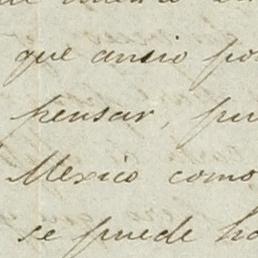 que ansio po
pensar, pu
Mexico como
se puede ha